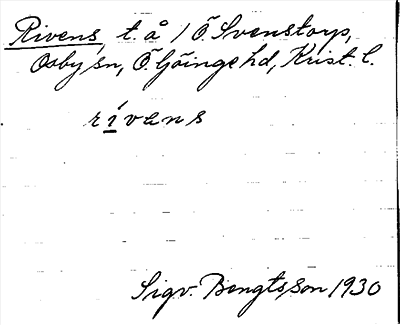 Rivens, t. å / Ö. Svenstorp,
Osby sn, Ö. Göinge hd, Krist. l.
rívens
Sigv. Bengtsson 1930